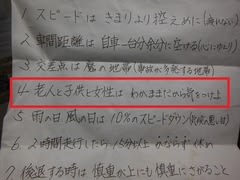 1 スピードは きまりより控えめに(乗れない)
2 車間距離は 自車一台分余分に空ける(心にゆとり)
3 交差点は 魔の地帯(事故が多発する地帯)
4 老人と子供と女性は わがままだから気をつけよ
5 雨の日 風の日は 10%のスピードダウン
6 2時間走行したら 15分以上 かならず 休め
7 後退する時は 慎重の上にも 慎重にさがること